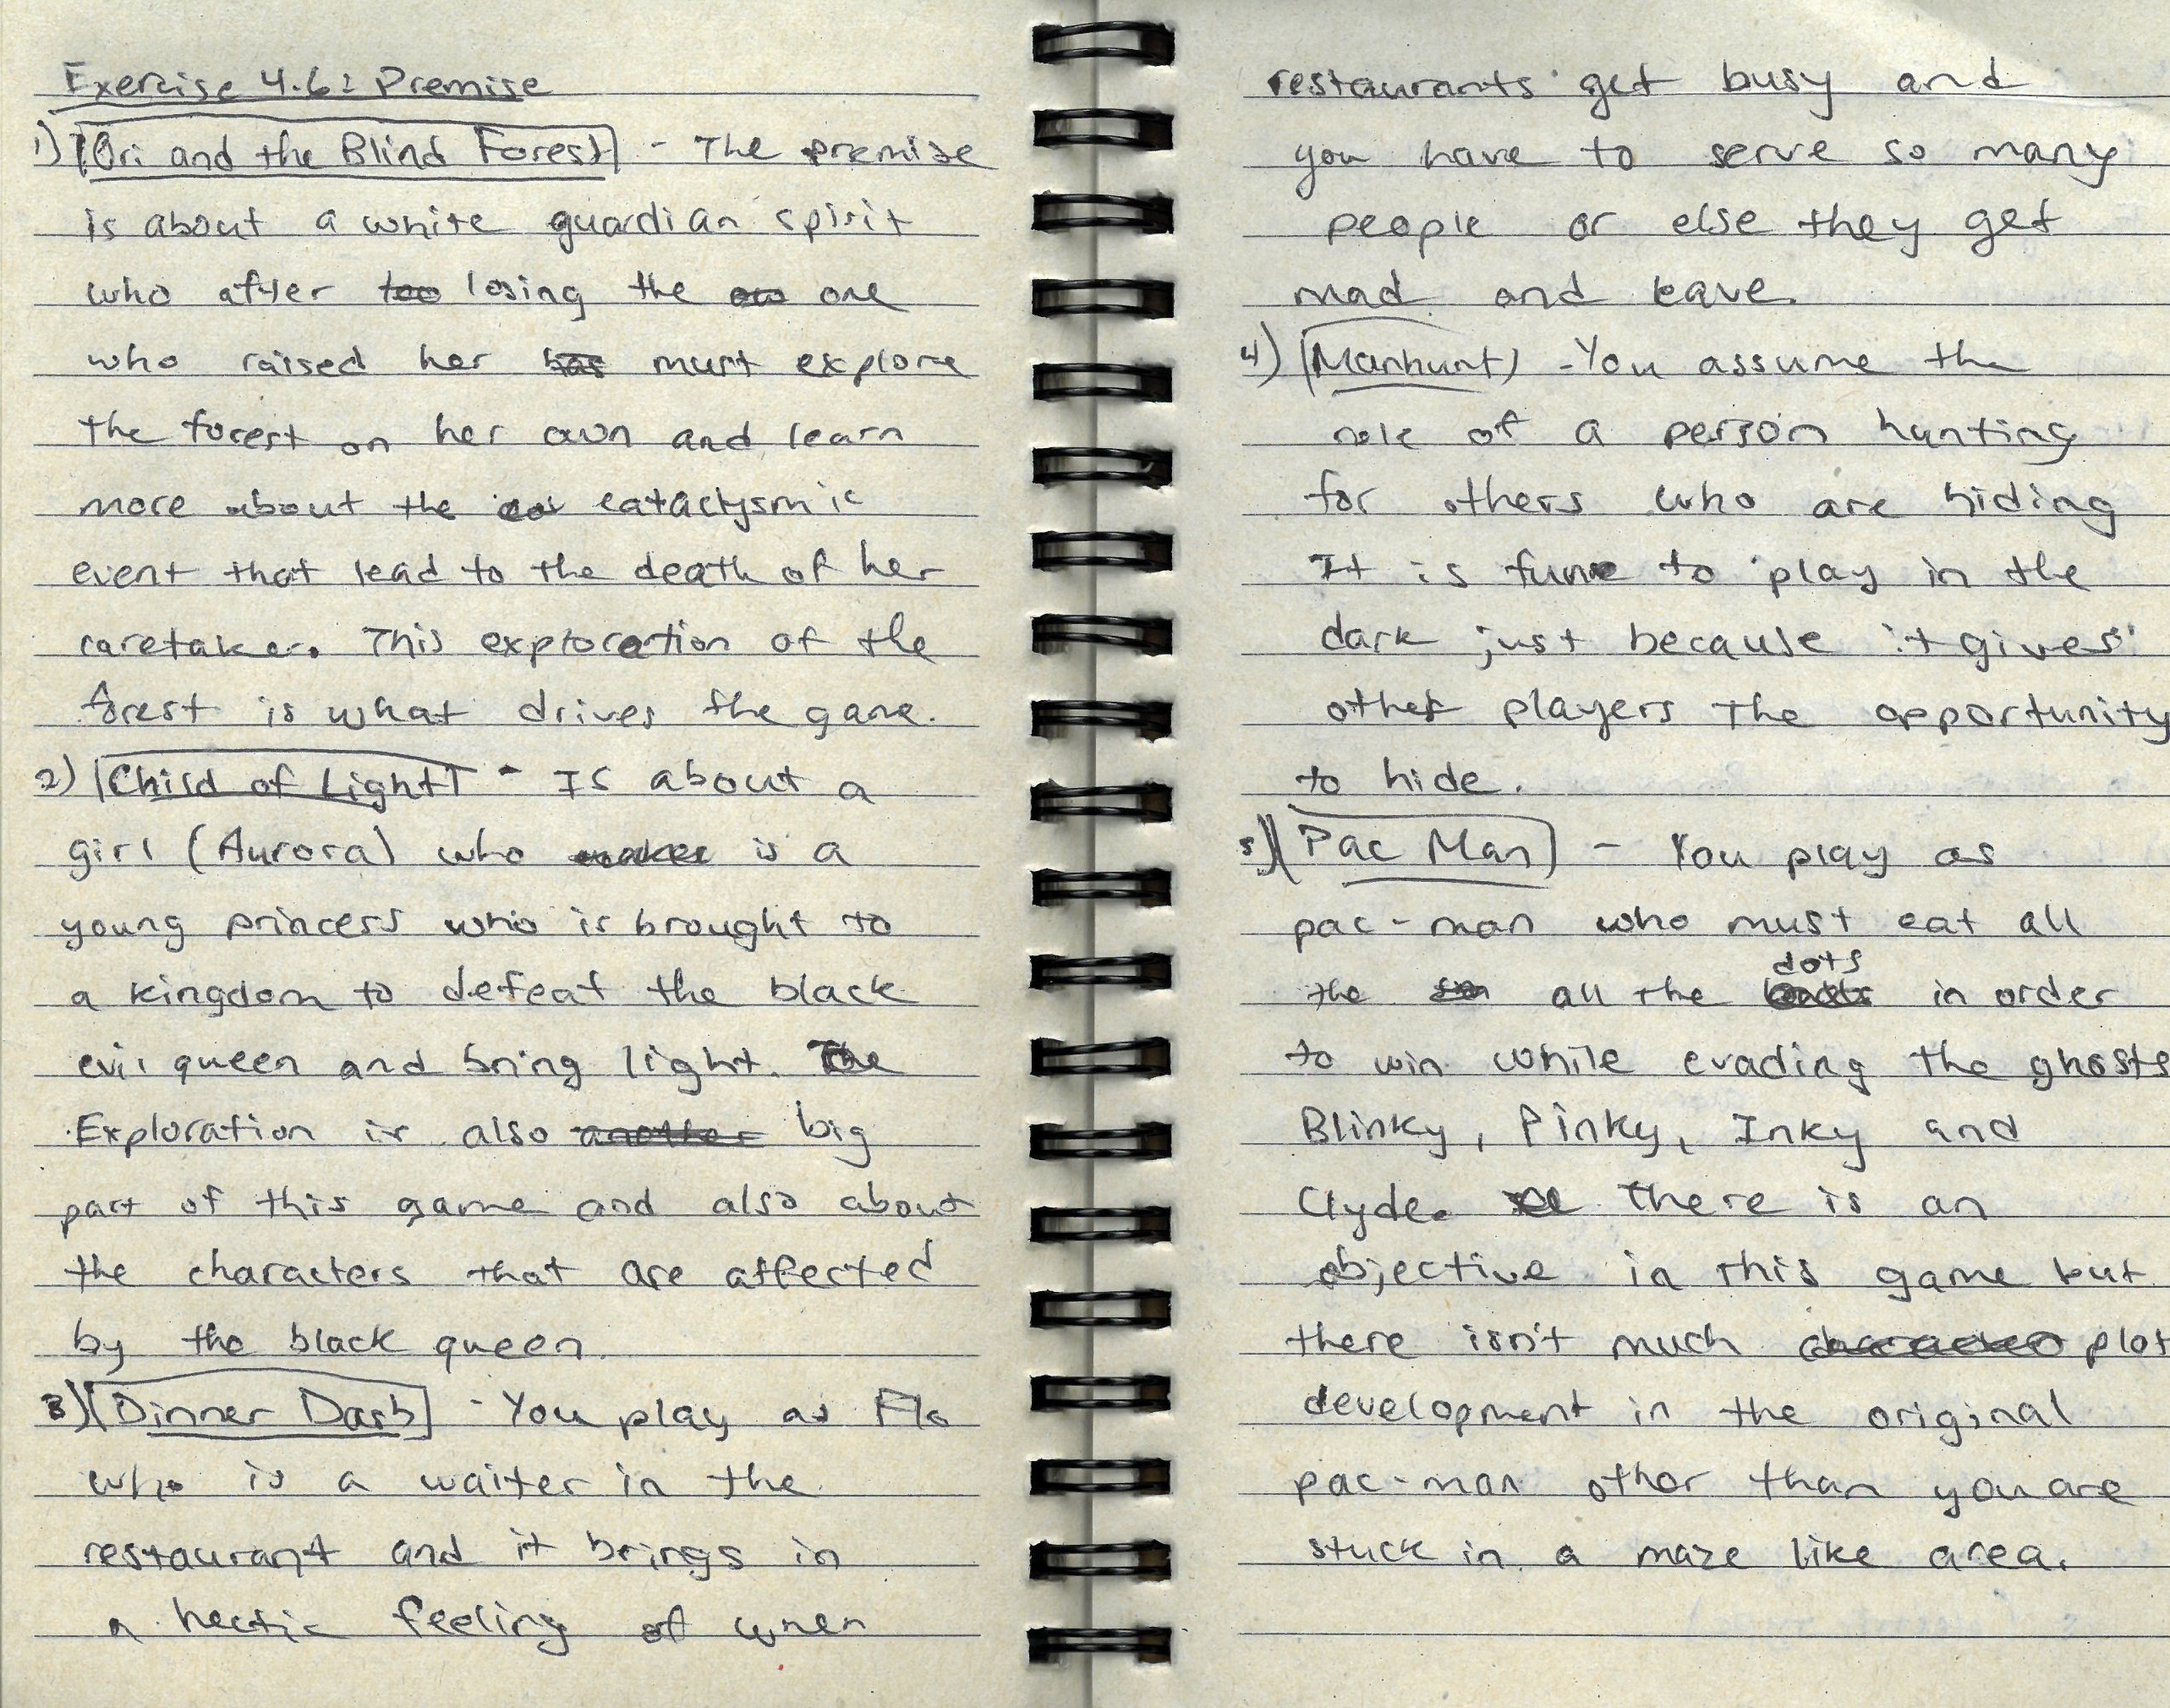 Exercise 4.6: Premise
1) [Ori and the Blind Forest] - The premise
is about a white guardian spirit
who after losing the one
who raised her must explore
the forest on her own and learn
more about the cataclysmic
event that lead to the death of her
caretaker. This exploration of the
forest is what drives the game.
2) [Child of Light] - Is about a
girl (Aurora) who is a
young princess who is brought to
a kingdom to defeat the black
evil queen and bring light. The
Exploration is also another big
part of this game and also about
the characters that are affected
by the black queen.
3) [Dinner Dash] - You play as Flo
who is a waiter in the
restaurant and it brings in
a hectic feeling of when
restaurants get busy and
you have to serve so many
people or else they get
mad and leave.
4) [Manhunt] - You assume the
role of a person hunting
for others who are hiding
It is fun to play in the
dark just because it gives
other players the opportunity
to hide.
5) [Pac Man] - You play as
pac-man who must eat all
the all the dots in order
to win while evading the ghosts
Blinky, Pinky, Inky and
Clyde. There is an
objective in this game but
there isn't much character plot
development in the original
pac-man other than you are
stuck in a maze like area.